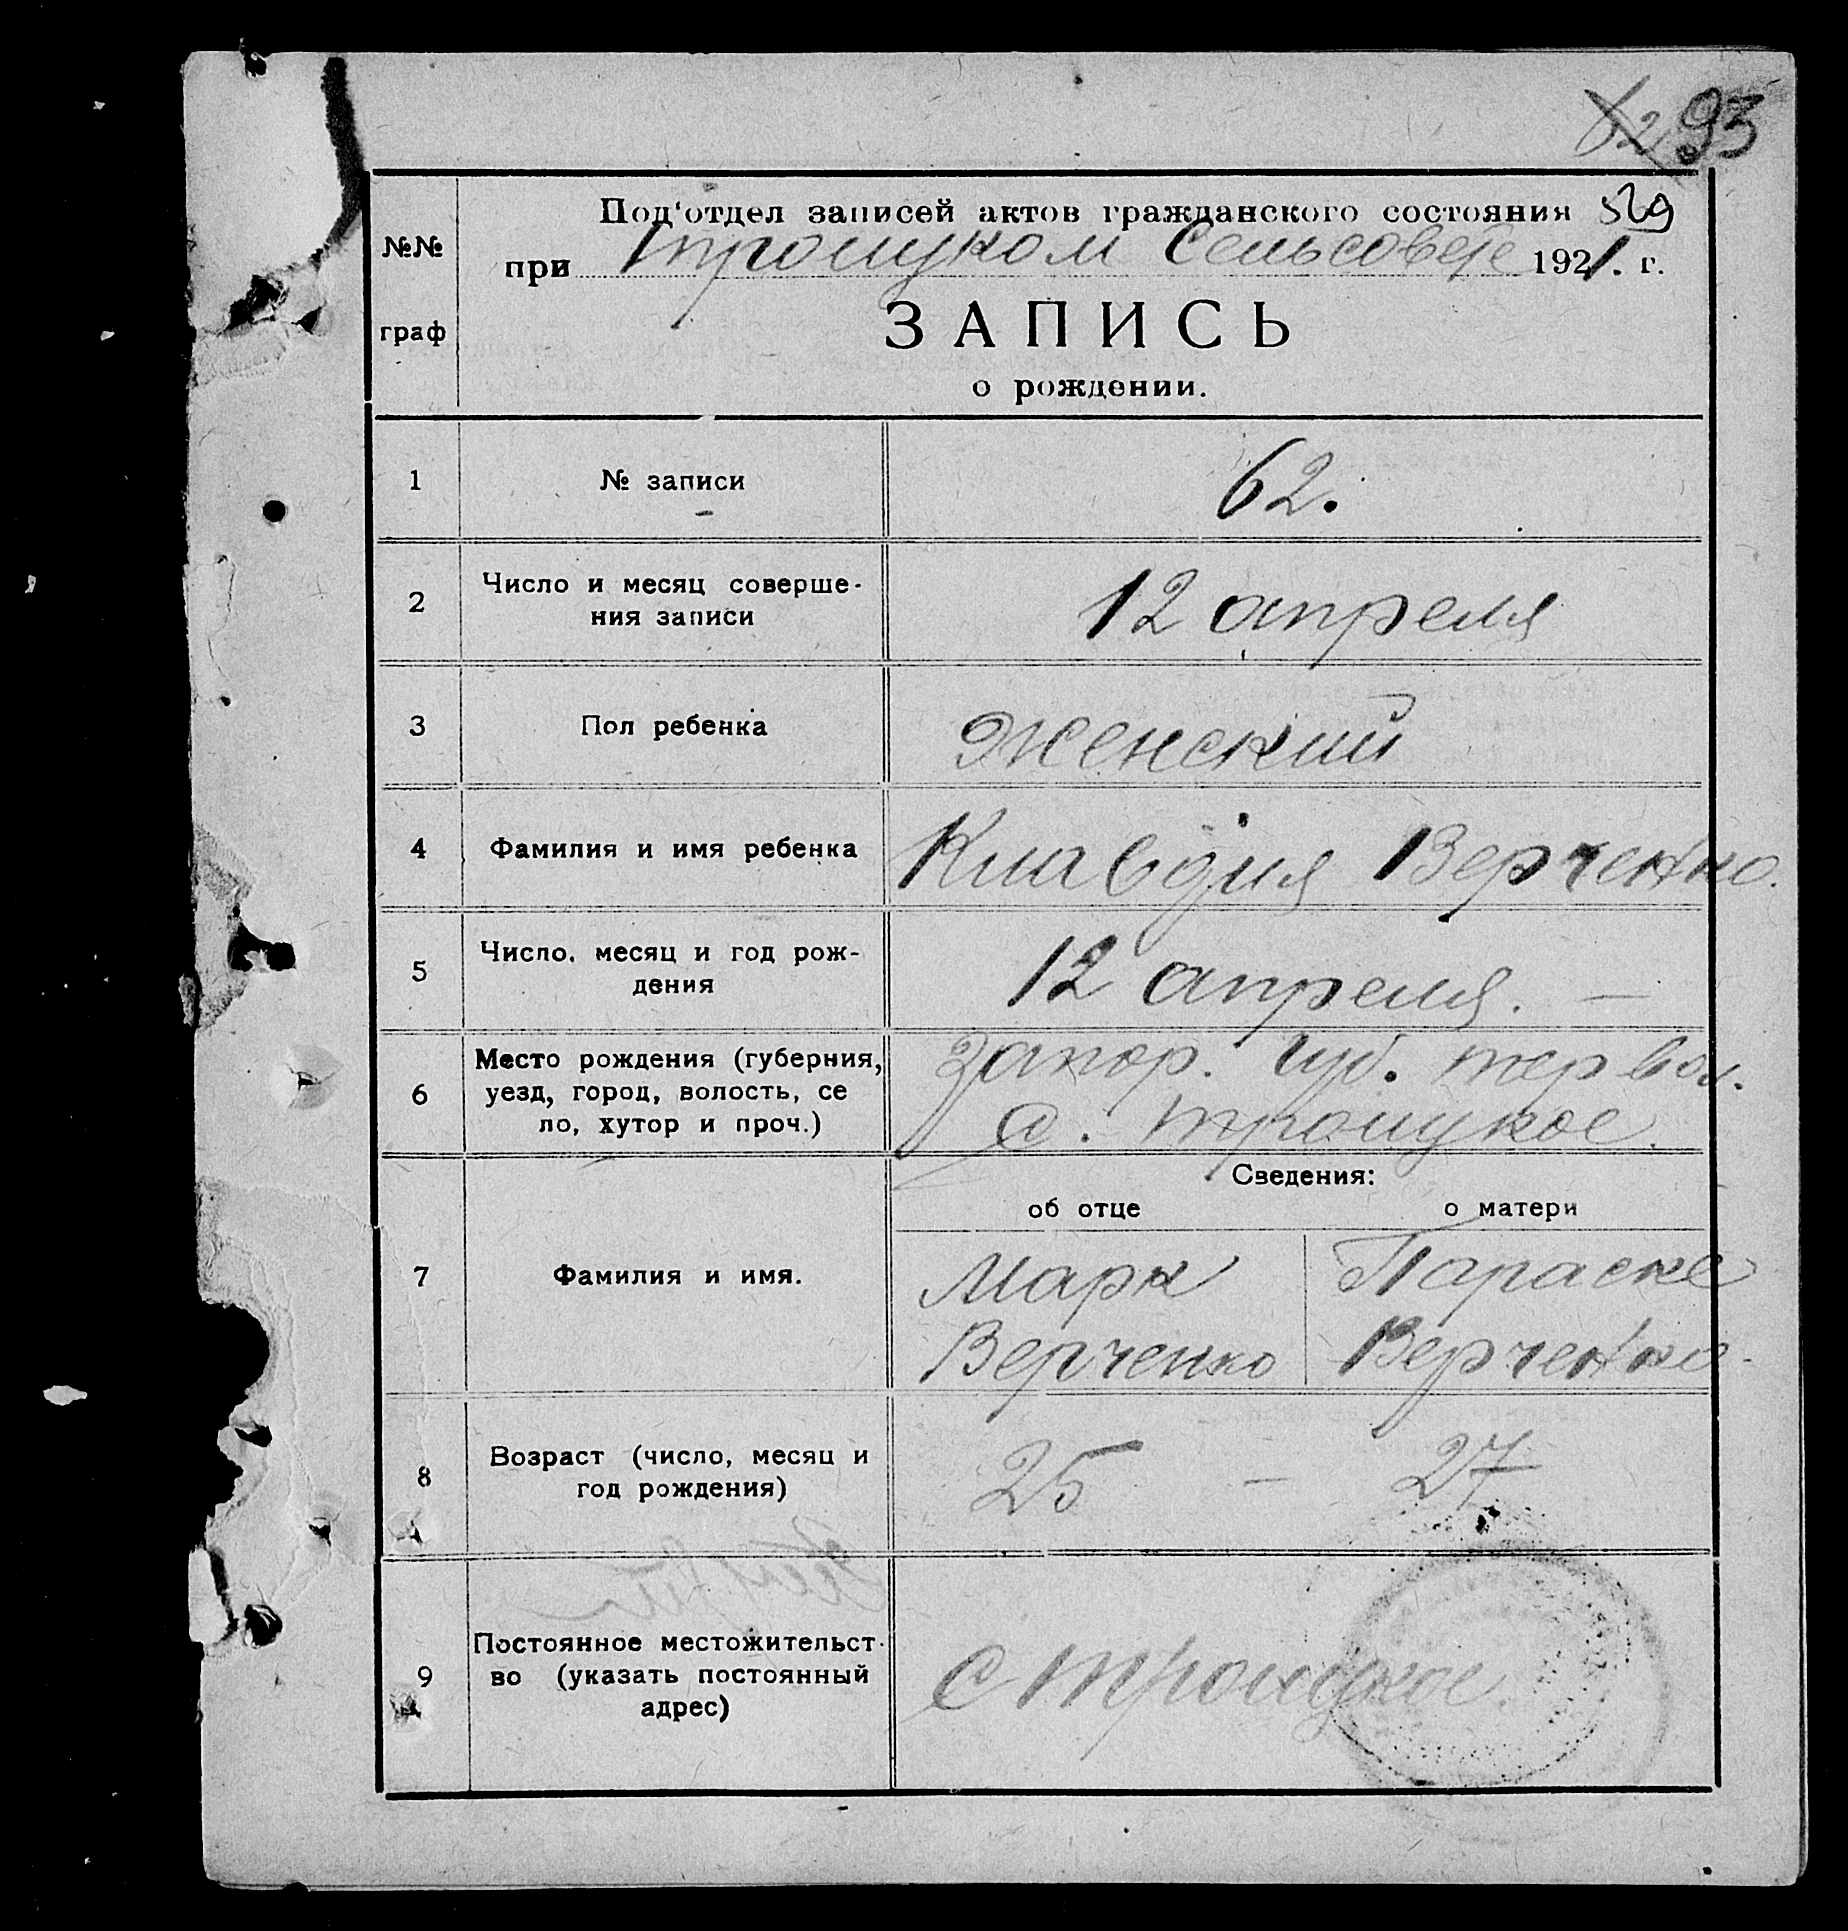 62 93
Под'отдел записей актов гражданского состояния
№№
при Троицком Сельсовете 1921. г.
граф
ЗАПИСЬ
о рождении.
1 № записи 62.
2 Число и месяц соверше-
ния записи
12 апреля
3 Пол ребенка Женский
4 Фамилия и имя ребенка Клавдия Верченко.
5 Число, месяц и год рож-
дения
12 апреля. —
6 Место рождения (губерния,
уезд, город, волость, се
ло, хутор и проч.)
Запор. Губ. тер вол.
с. Троицкое.
Сведения:
об отце о матери
7 Фамилия и имя.
Марк Параске
Верченко Верченко
8 Возраст (число, месяц и
год рождения)
25 — 27
9 Постоянное местожительст-
во (указать постоянный
адрес)
с Троицкое.